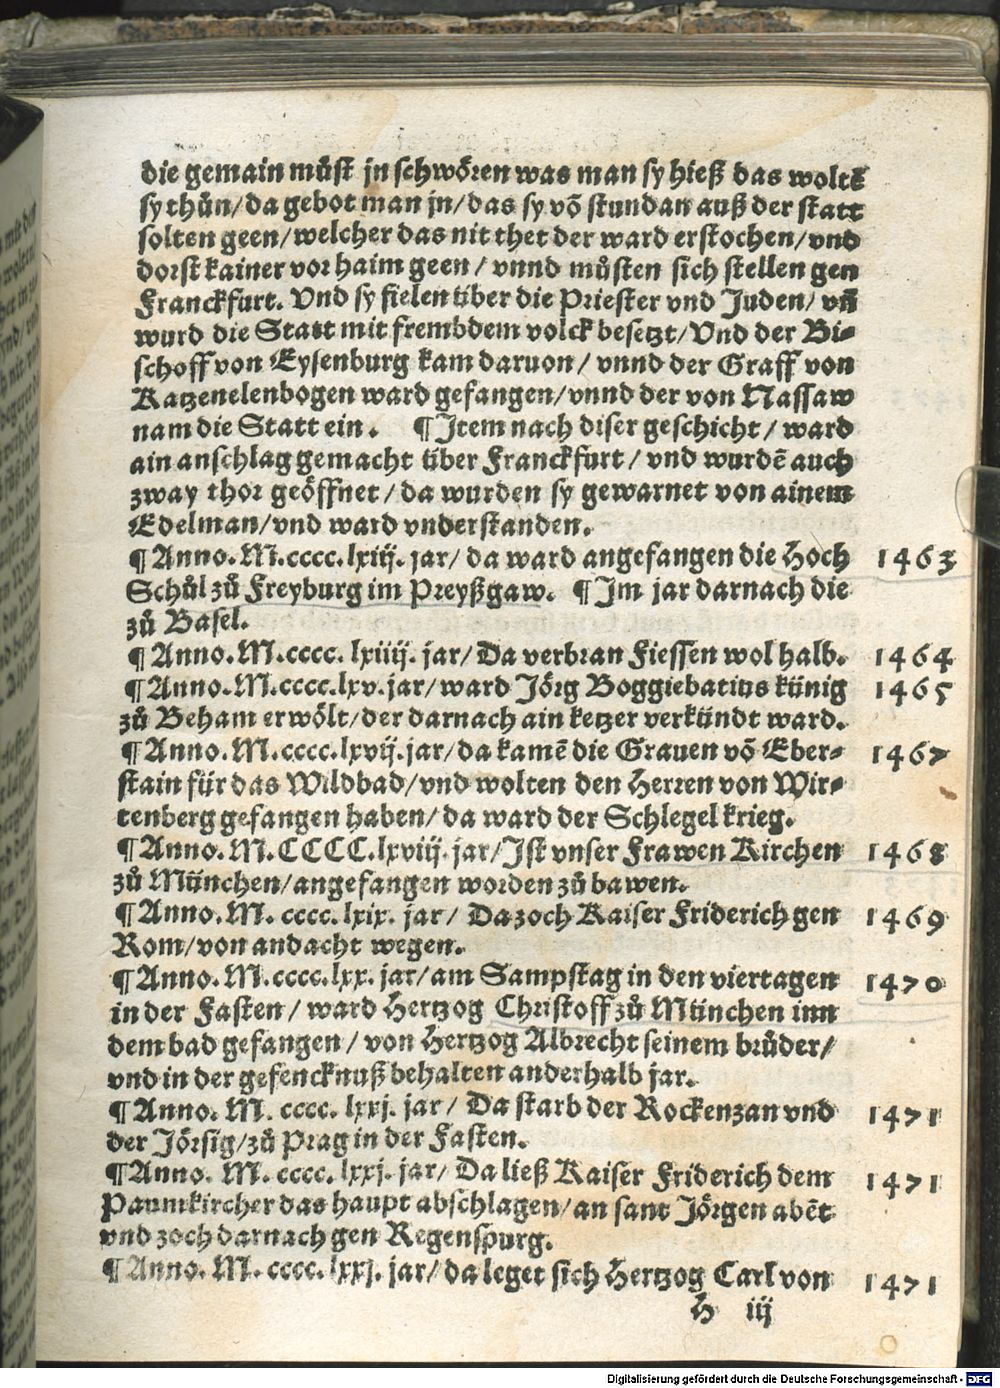 die gemain müst jn schwören was man sy hieß das woltē
sy thůn/da gebot man jn/das sy vō stundan auß der statt
solten geen/welcher das nit thet der ward erstochen/vnd
dorst kainer vor haim geen/vnnd můsten sich stellen gen
Franckfurt. Vnd sy fielen über die Priester vnd Juden/vñ
wurd die Statt mit frembdem volck besetzt/Vnd der Bi-
schoff von Eysenburg kam daruon/vnnd der Graff von
Katzenelenbogen ward gefangen/vnnd der von Nassaw
nam die Statt ein. ¶Jtem nach diser geschicht/ward
ain anschlag gemacht über Franckfurt/vnd wurdē auch
zway thor geöffnet/da wurden sy gewarnet von ainem
Edelman/vnd ward vnderstanden.
¶Anno.M.cccc.lxiij.jar/da ward angefangen die Hoch 1463
Schůl zů Freyburg im Preyßgaw. ¶Jm jar darnach die
zů Basel.
¶Anno.M.cccc.lxiiij.jar/Da verbran Fiessen wol halb. 1464
¶Anno.M.cccc.lxv.jar/ward Jörg Boggiebatius künig 1465
zů Beham erwölt/der darnach ain ketzer verkündt ward.
¶Anno.M.cccc.lxvij.jar/da kamē die Grauen vō Eber- 1467
stain für das Wildbad/vnd wolten den Herren von Wir-
tenberg gefangen haben/da ward der Schlegel krieg.
¶Anno.M.CCCC.lxviij.jar/Jst vnser Frawen Kirchen 1468
zů München/angefangen worden zů bawen.
¶Anno.M.cccc.lxix.jar/Da zoch Kaiser Friderich gen 1469
Rom/von andacht wegen.
¶Anno.M.cccc.lxx.jar/am Sampstag in den viertagen 1470
in der Fasten/ward Hertzog Christoff zů München inn
dem bad gefangen/von Hertzog Albrecht seinem brůder/
vnd in der gefencknuß behalten anderhalb jar.
¶Anno.M.cccc.lxxj.jar/Da starb der Rockenzan vnd 1471
der Jörsig/zů Prag in der Fasten.
¶Anno.M.cccc.lxxj.jar/Da ließ Kaiser Friderich dem 1471
Paumkircher das haupt abschlagen/an sant Jörgen abēt
vnd zoch darnach gen Regenspurg.
¶Anno.M.cccc.lxxj.jar/da leget sich Hertzog Carl von 1471
H iij
Digitalisierung gefördert durch die Deutsche Forschungsgemeinschaft - DFG